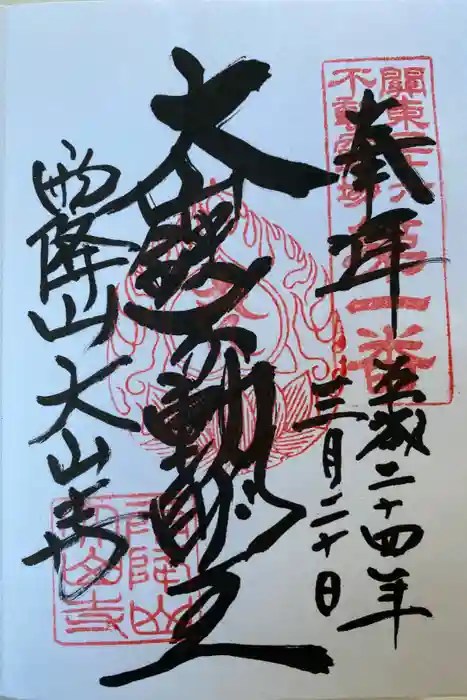 奉拝
平成二十四年
三月二十日
關東三十六
不動霊場
第一番
大山鐵不動明王
雨降山大山寺
雨降山
大山寺